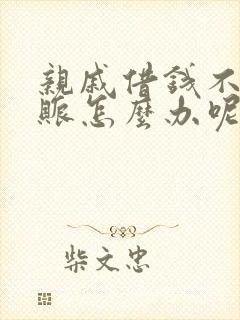 親戚借錢不
賬怎麼办呢
柴文忠